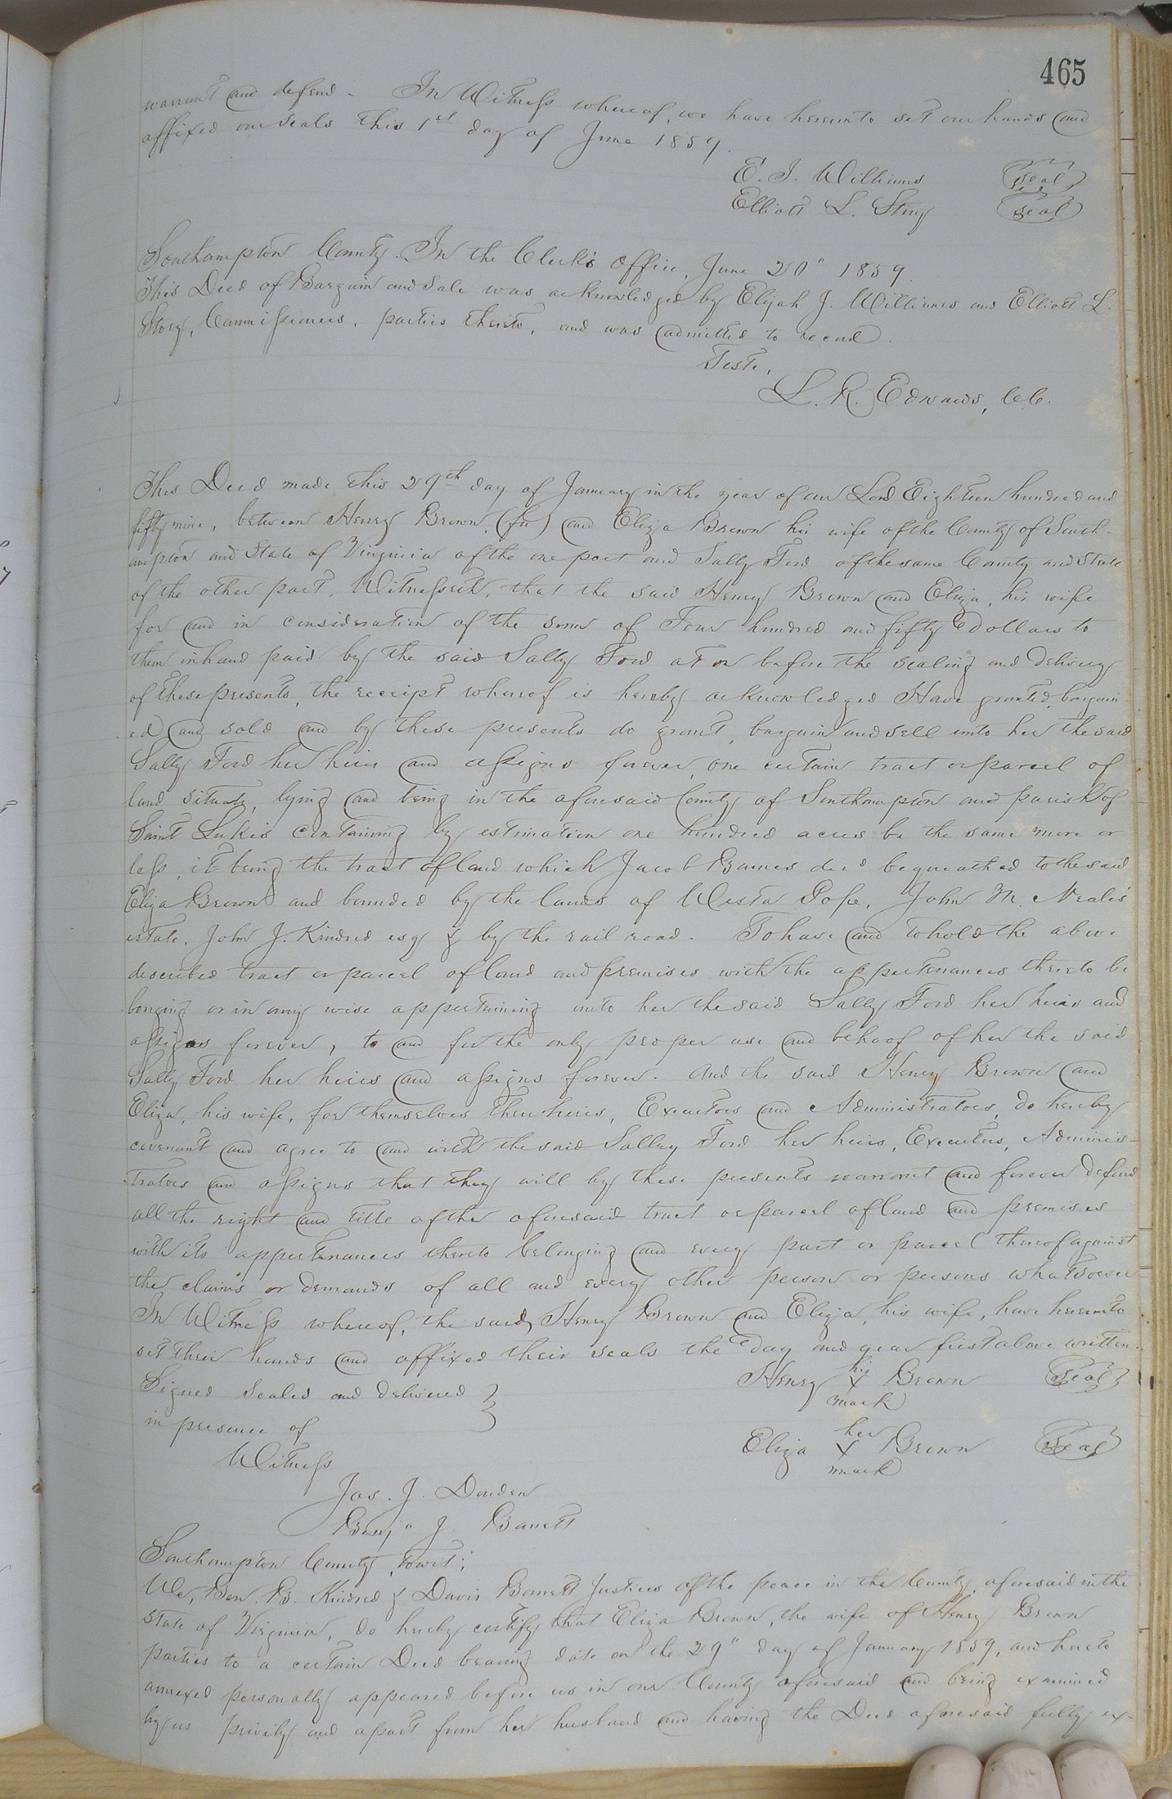 465
warrant and defend. In Witness whereof, we have hereunto set our hands and
affixed our seals this 1st day of June 1859.
E. J. Williams Seal
Elliott L. Story Seal
Southampton County. In the Clerk's Office, June 20" 1859.
This Deed of Bargain and Sale was acknowledged by Elijah J. Williams and Elliott L.
Story, Commissioners, parties thereto, and was admitted to record.
Teste,
L. R. Edwards, C.C.
This Deed made this 29th day of January in the year of our Lord Eighteen hundred and
fifty nine, between Henry Brown (fn) and Eliza Brown his wife of the County of South-
ampton and State of Virginia of the one part and Sally Ford of the same County and State
of the other part, Witnesseth, that the said Henry Brown and Eliza, his wife
for and in consideration of the sum of Four hundred and fifty Dollars to
them in hand paid by the said Sally Ford at or before the sealing and delivery
of these presents, the receipt whereof is hereby acknowledged Have granted, bargain
ed and sold and by these presents do grant, bargain and sell unto her the said
Sally Ford her heirs and assigns forever, one certain tract or parcel of
land situate, lying and being in the aforesaid County of Southampton and parish of
Saint Luke's containing by estimation one hundred acres be the same more or
less, it being the tract of land which Jacob Barnes decd bequeathed to the said
Eliza Brown and bounded by the lands of Westa Pope, John M. Neale's
estate, John J. Kindred esq & by the rail road. To have and to hold the above
described tract or parcel of land and premises with the appertenances thereto be
longing or in any wise appertaining unto her the said Sally Ford her heirs and
assigns forever, to and for the only proper use and behoof of her the said
Sally Ford her heirs and assigns forever. And the said Henry Brown and
Eliza, his wife, for themselves their heirs, Executors and Administrators, do hereby
covenant and agree to and with the said Salley Ford her heirs, Executors, Adminis-
trators and assigns that they will by these presents warrant and forever defend
all the right and title of the aforesaid tract or parcel of land and premises
with its appertenances thereto belonging and every part or parcel thereof against
the claims or demands of all and every other person or persons whatsoever
In Witness whereof, the said, Henry Brown and Eliza, his wife, have hereunto
set their hands and affixed their seals the day and year first above written.
Signed Sealed and delivered
in presence of
Witness
Henry his X mark Brown Seal
Eliza her X mark Brown Seal
Jas. J. Darden
Benj" J. Barrett
Southampton County, towit;
We, Ben. B. Kindred & Davis Barrett Justices of the peace in the County aforesaid in the
State of Virginia, do hereby certify that Eliza Brown, the wife of Henry Brown
parties to a certain Deed bearing date on the 29" day of January 1859, and hereto
annexed personally appeared before us in our County aforesaid and being examined
by us privily and apart from her husband and having the Deed aforesaid fully ex-